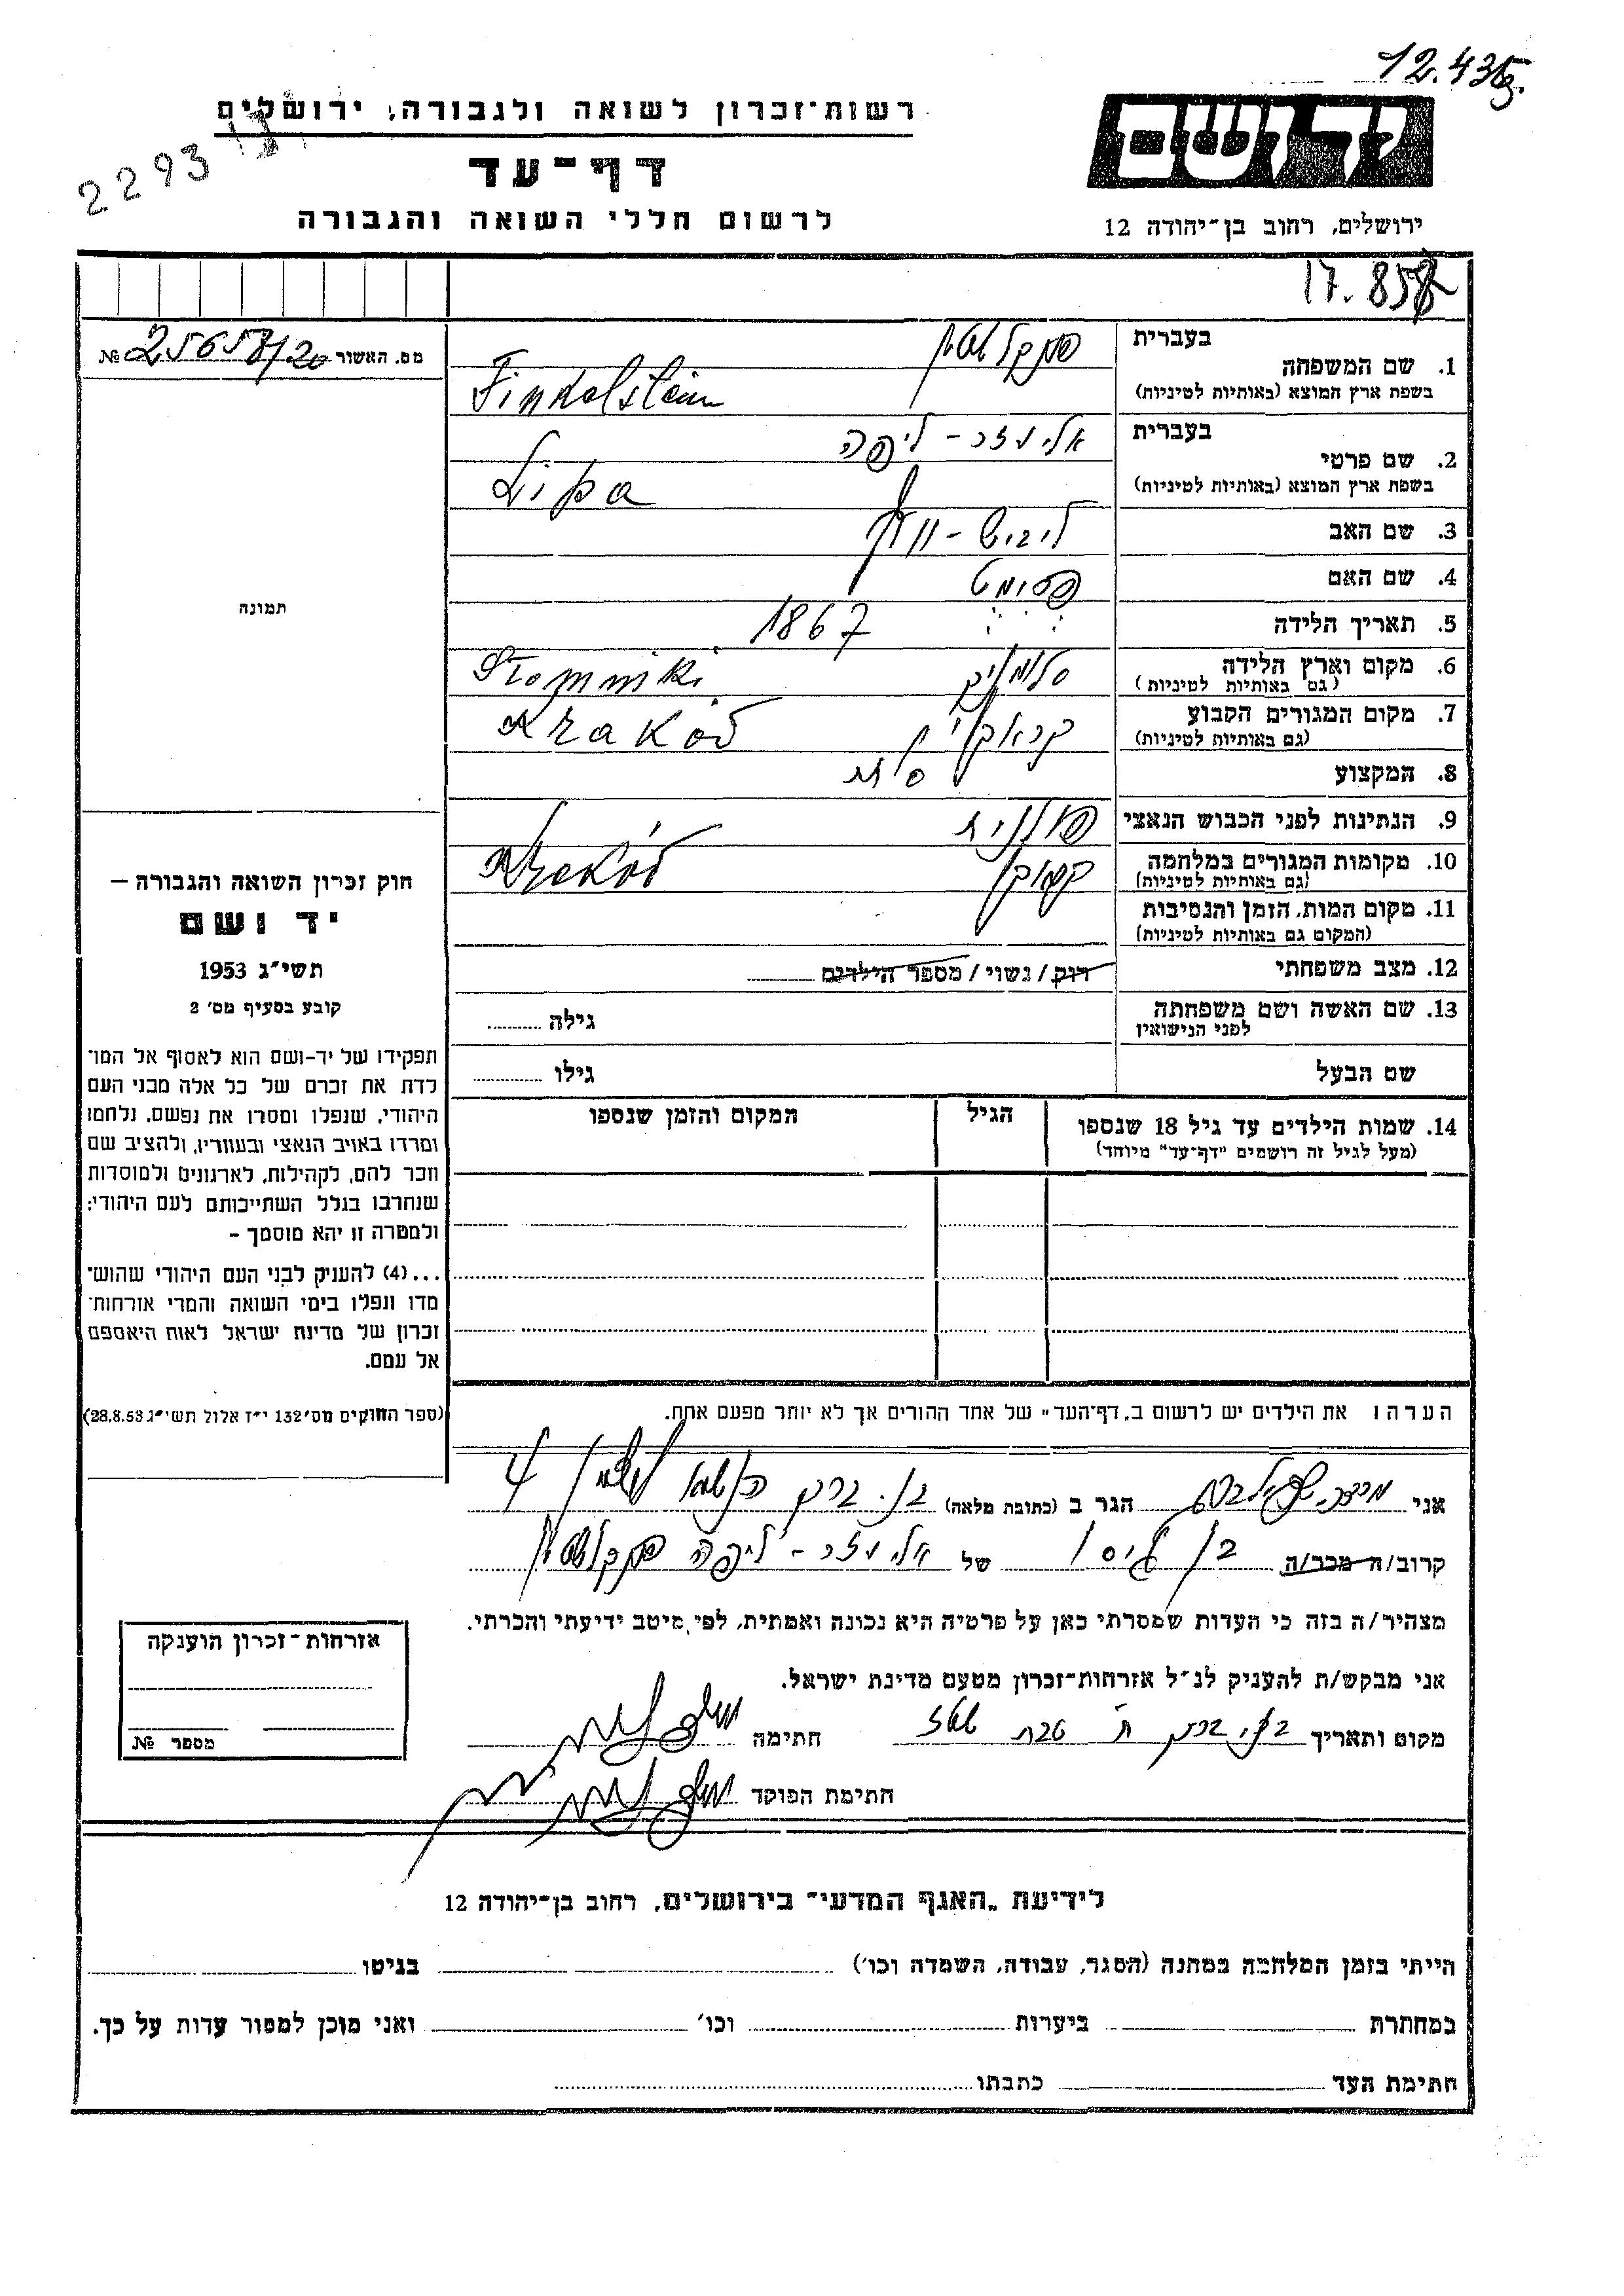 12.435
רשות־זכרון לשואה ולגבורה, ירושלים
יד ושם
2293
דף־עד
לרשום חללי השואה והגבורה
ירושלים, רחוב בן־יהודה 12
17.858
מס. האשור 25658/20 №
בעברית
1. שם המשפחה פינקלשטיין
בשפת ארץ המוצא (באותיות לטיניות) Finkelstein
בעברית
2. שם פרטי אליעזר - ליפה
בשפת ארץ המוצא (באותיות לטיניות) Lipa
3. שם האב לייביש - וולף
4. שם האם
תמונה
5. תאריך הלידה 1867
6. מקום וארץ הלידה Słomniki
(גם באותיות לטיניות)
7. מקום המגורים הקבוע Kraków
(גם באותיות לטיניות)
8. המקצוע
9. הנתינות לפני הכבוש הנאצי פולנית
10. מקומות המגורים במלחמה Kraków
(גם באותיות לטיניות)
11. מקום המות, הזמן והנסיבות
(המקום גם באותיות לטיניות)
12. מצב משפחתי רוק/ נשוי/ מספר הילדים
13. שם האשה ושם משפחתה גילה
לפני הנישואין
שם הבעל גילו
14. שמות הילדים עד גיל 18 שנספו הגיל המקום והזמן שנספו
(מעל לגיל זה רושמים "דף־עד" מיוחד)
חוק זכרון השואה והגבורה —
יד ושם
תשי״ג 1953
קובע בסעיף מס׳ 2
תפקידו של יד-ושם הוא לאסוף אל המו־
לדת את זכרם של כל אלה מבני העם
היהודי, שנפלו ומסרו את נפשם, נלחמו
ומרדו באויב הנאצי ובעוזריו, ולהציב שם
וזכר להם, לקהילות, לארגונים ולמוסדות
שנחרבו בגלל השתייכותם לעם היהודי;
ולמטרה זו יהא מוסמך –
...(4) להעניק לבני העם היהודי שהוש־
מדו ונפלו בימי השואה והמרי אזרחות־
זכרון של מדינת ישראל לאות היאספם
אל עמם.
(ספר החוקים מס׳132 י״ז אלול תשי״ג 28.8.53)
הערה: את הילדים יש לרשום ב„דף־העד" של אחד ההורים אך לא יותר מפעם אחת.
אני הגר ב (כתובת מלאה) בני ברק 4
קרוב/ה מכר/ה בן גיסו של אליעזר - ליפה פינקלשטיין
מצהיר/ה בזה כי העדות שמסרתי כאן על פרטיה היא נכונה ואמתית, לפי מיטב ידיעתי והכרתי.
אני מבקש/ת להעניק לנ״ל אזרחות־זכרון מטעם מדינת ישראל.
מקום ותאריך בני ברק טבת חתימה
חתימת הפוקד
אזרחות־זכרון הוענקה
מספר №
לידיעת „האגף המדעי" בירושלים, רחוב בן־יהודה 12
הייתי בזמן המלחמה במחנה (הסגר, עבודה, השמדה וכו׳) בגיטו
במחתרת ביערות וכו׳ ואני מוכן למסור עדות על כך.
חתימת העד כתבתו